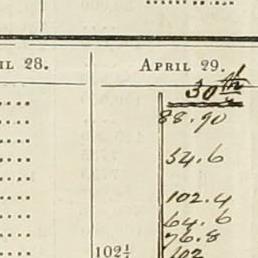 IL 28. APRIL 29.
30th
88.90
54.6
102.4
64.6
76.8
102½ 102